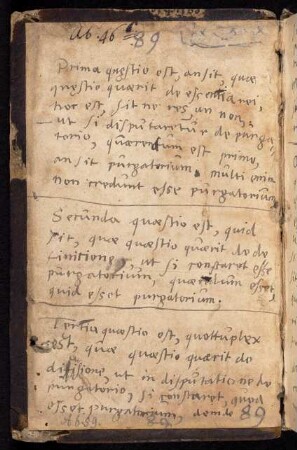 Ab. 46
89
Prima quęstio est, an sit, quæ
quęstio quærit de essentia rei
hoc est, sit ne res an non,
ut si disputaretur de purga
torio, quærendum est primo,
an sit purgatorium. multi enim
non credunt esse purgatorium
Secunda quæstio est, quid
sit, quæ quæstio quærit de de
finitione, ut si constaret esse
purgatorium, quærendum esset,
quid esset purgatorium.
Tertia quæstio est, quottuplex
sit, quæ quæstio quærit de
divisione, ut in disputatione de
purgatorio, si constaret, quod
esset purgatorium, deinde
89